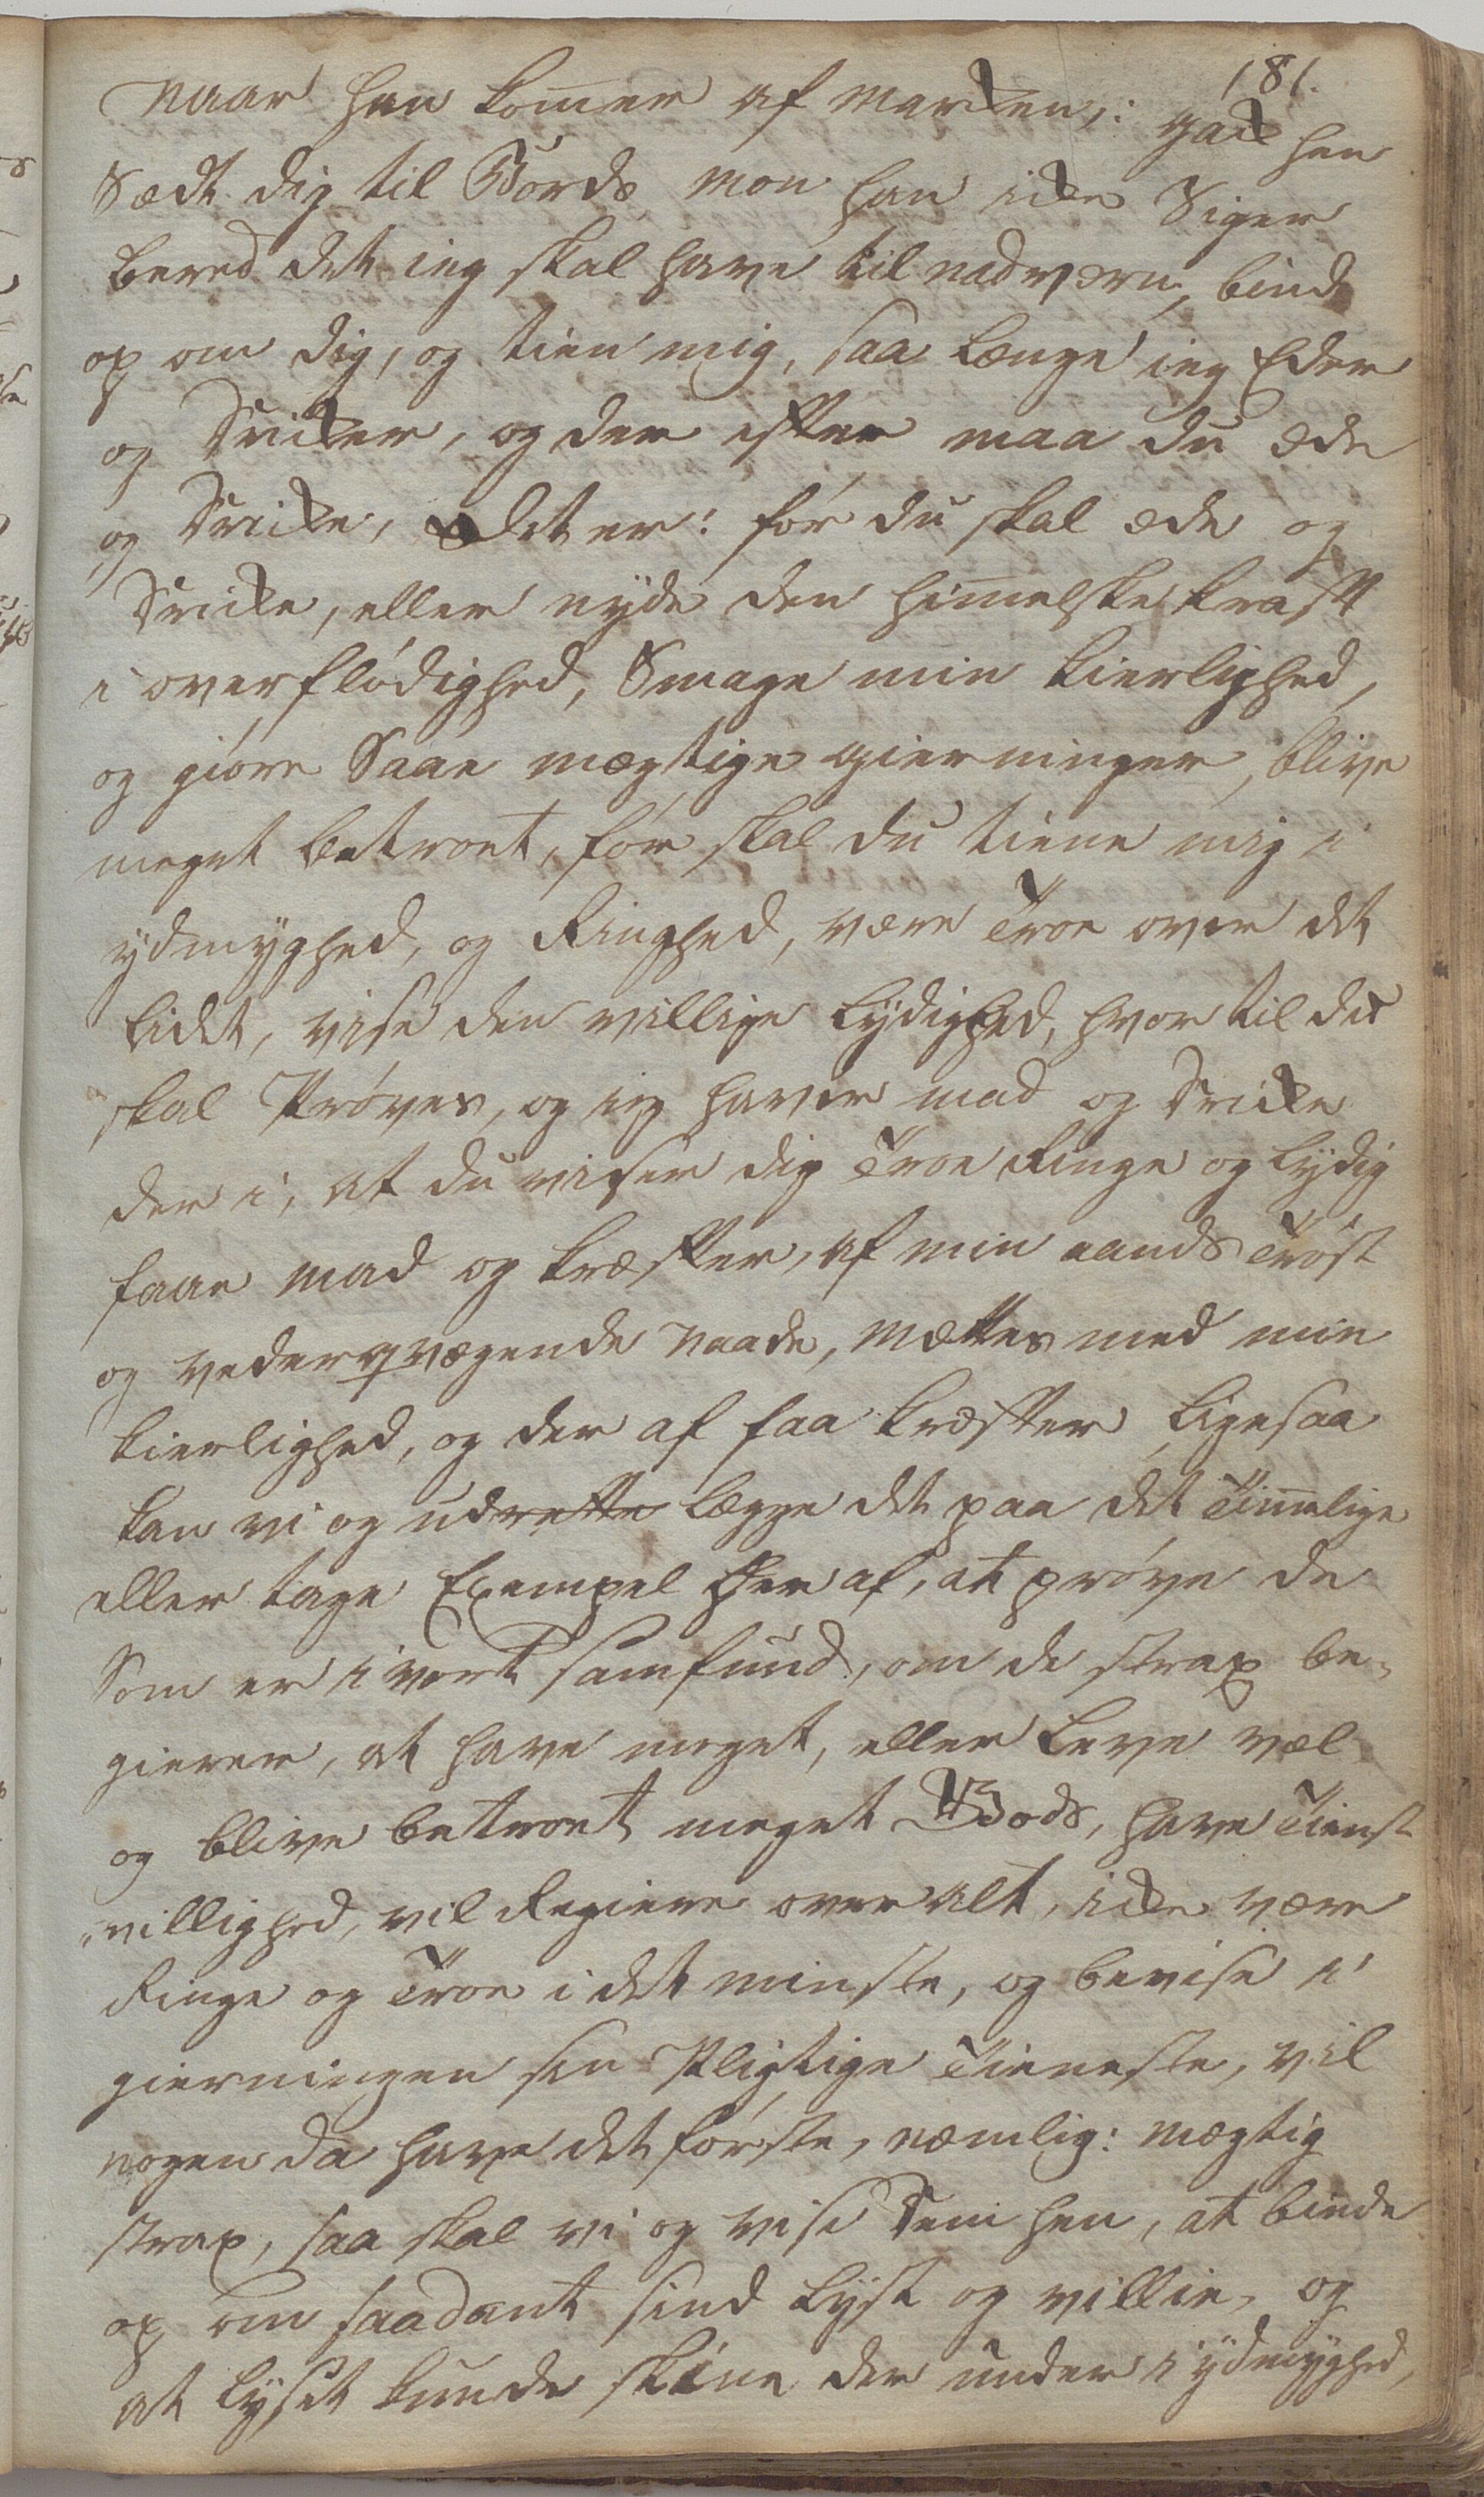 181.
naar han kom̅er af marken,: gak hen
Sædt dig til Bords, mon han ikke Siger
bered det ieg skal have til nadværn, bind
op om dig, og tien mig, saa længe ieg Eder
og Dricker, og der efter maa du æde
og Dricke, det er: för du skal æde og
Dricke, eller nyde den him̅elske kraft
i overflödighed, Smage min kierlighed,
og giöre Saae mægtige gierninger, blive
meget betroet, för skal du tiene mig i
ydmyghed, og Ringhed, være Troe over det
lidet, vise den villige Lydighed, hvor til du
skal Pröves, og ieg haver mad og Dricke
der i, at du viser dig Troe Ringe og Lydig
faae mad og kræfter, af min aands Tröst
og vederqvægende naade, mættes med min
kierlighed, og der af faa kræfter, ligesaa
kan vi og udrette lægge det paa det Tim̅elige
eller tage Exempel her af, at pröve de
Som er i vort samfund, om de strax be-
gierer, at have meget, eller Leve vel
og blive betroet meget Gods, have Tienst
villighed, vil Regiere over alt, icke være
Ringe og Troe i det minste, og bevise i
gierningen sin Pligtige Tieneste, vil
nogen da have det förste, nemlig: mægtig
strax, saa skal vi og vise Dem hen, at binde
op om saadant sind Lyst og villie, og
at Lyset kunde skine der under i ydmyghed,